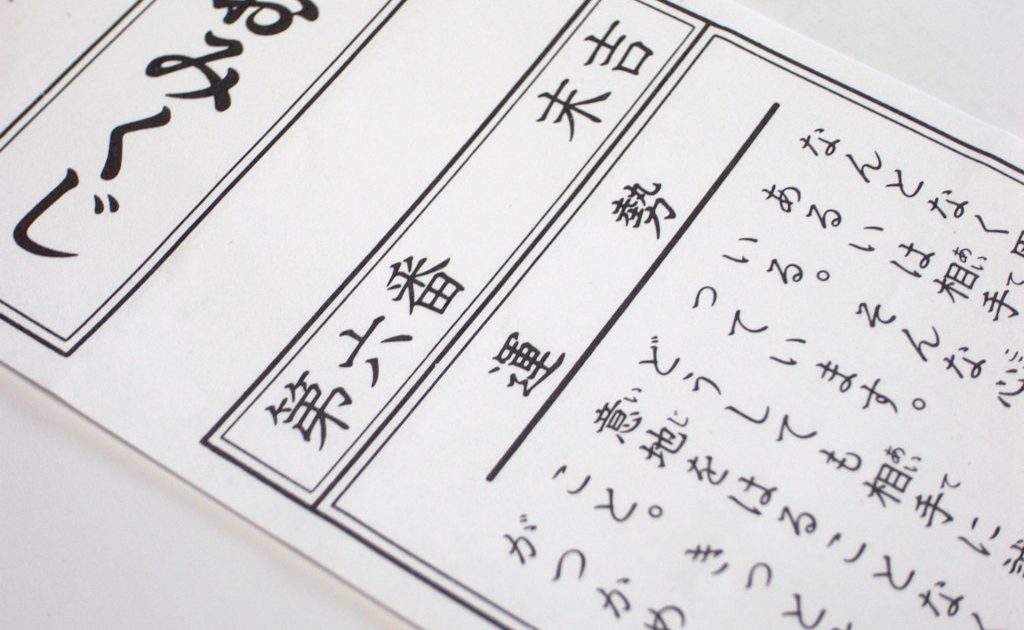 おみくじ
第六番 末吉
運勢
なんとなく
あるいは相手
いる。そんな心
っています。
どうしても相手に
意地をはることなく
こと。きっと
がつかめ